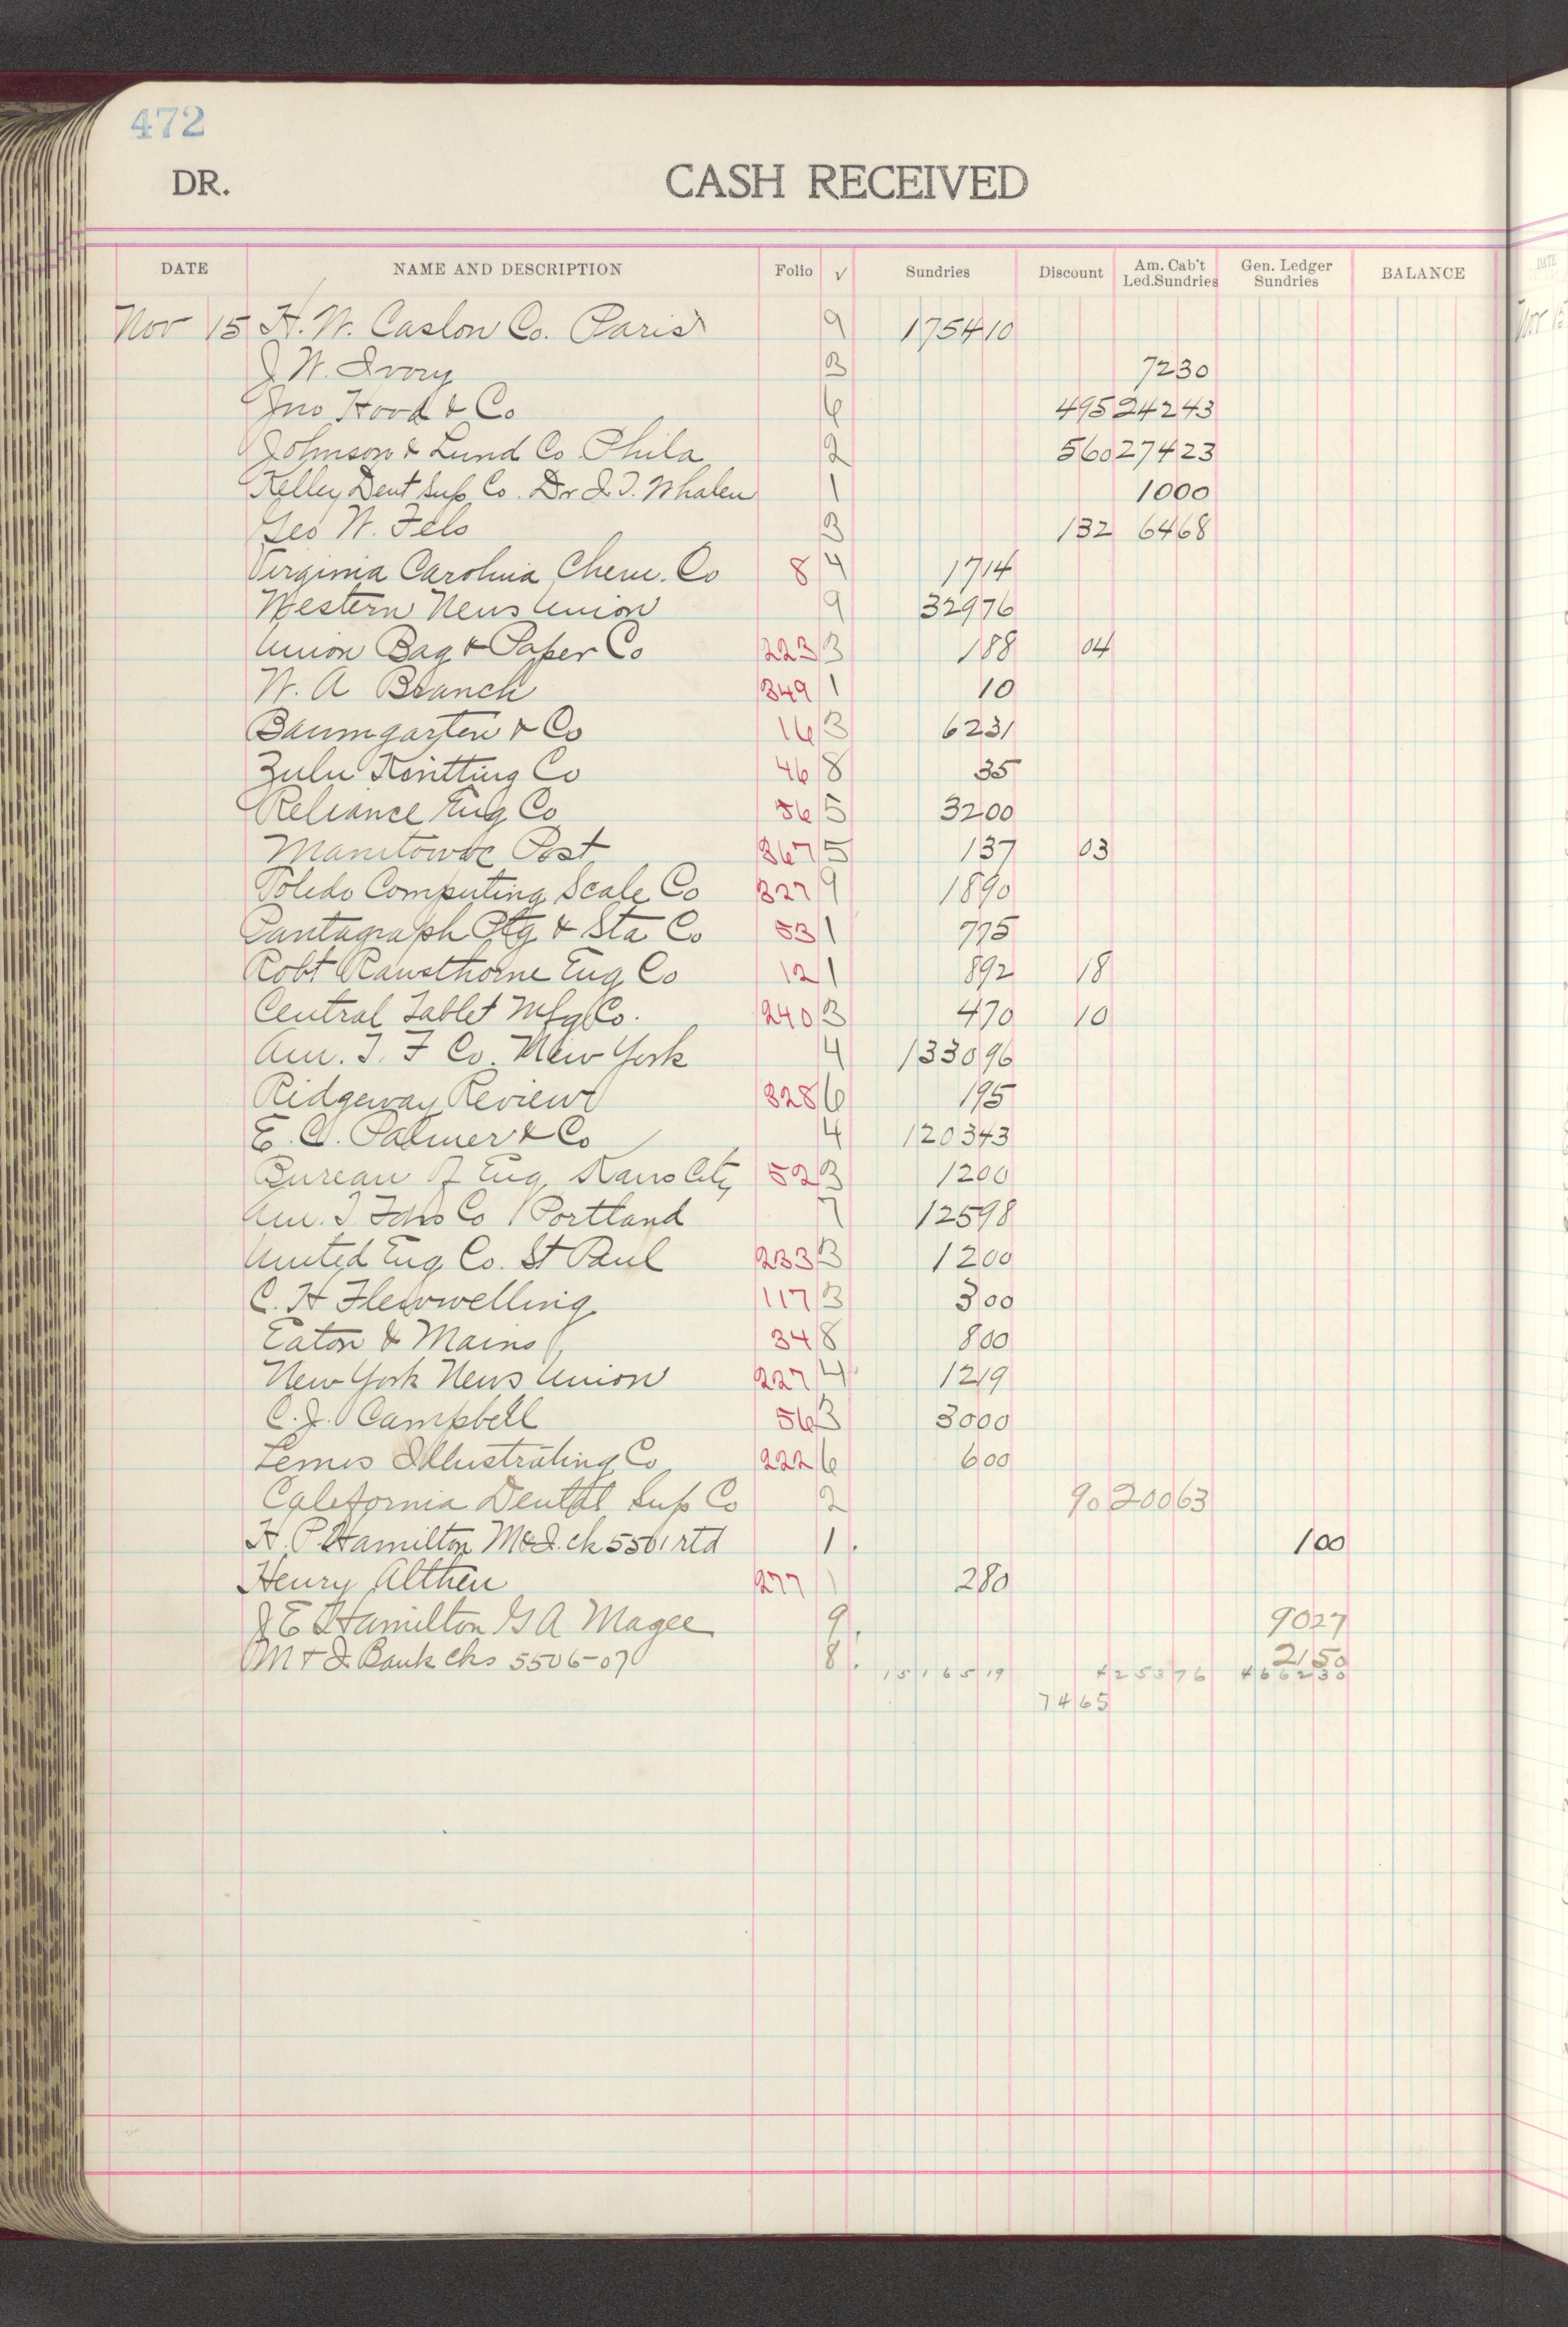 472
DR. CASH RECEIVED
DATE NAME AND DESCRIPTION Folio √ Sundries Discount Am. Cab't Led.Sundries Gen. Ledger Sundries BALANCE
Nov 15 H. W. Caslon Co. Paris 9 175410
J. W. Ivory 3 7230
Jno Hood & Co 6 495 24243
Johnson & Lund Co Phila 2 560 27423
Kelley Dent Sup Co. Dr J. T. Whalen 1 1000
Geo W. Fels 3 132 6468
Virginia Carolina Chem. Co 8 4 1714
Western News Union 9 32976
Union Bag & Paper Co 223 3 188 04
W. A Branch 349 1 10
Baumgarten & Co 16 3 6231
Zulu Knitting Co 46 8 35
Reliance Eng Co 56 5 3200
Manitowoc Post 367 5 137 03
Toledo Computing Scale Co 327 9 1890
Pantagraph Ptg & Sta Co 53 1 775
Robt Rawsthorne Eng Co 12 1 892 18
Central Tablet Mfg Co. 240 3 470 10
Am. T. F Co. New York 4 133096
Ridgeway Review 328 6 195
E. C. Palmer & Co 4 120343
Bureau of Eng Kans City 52 3 1200
Am. T Fdrs Co Portland 7 12598
United Eng Co. St Paul 233 3 1200
C. H Flewwelling 117 3 300
Eaton & Mains 34 8 800
New York News Union 227 4 1219
C. J. Campbell 56 3 3000
Lemos Illustrating Co 222 6 600
California Dental Sup Co 2 90 20063
H. P Hamilton M&I. ck 5501 rtd 1. 100
Henry Althen 277 1 280
J E Hamilton G A Magee 9. 9027
M & I Bank cks 5506-07 8. 2150
1516519 425376 466230
7465
DATE
Nov 15